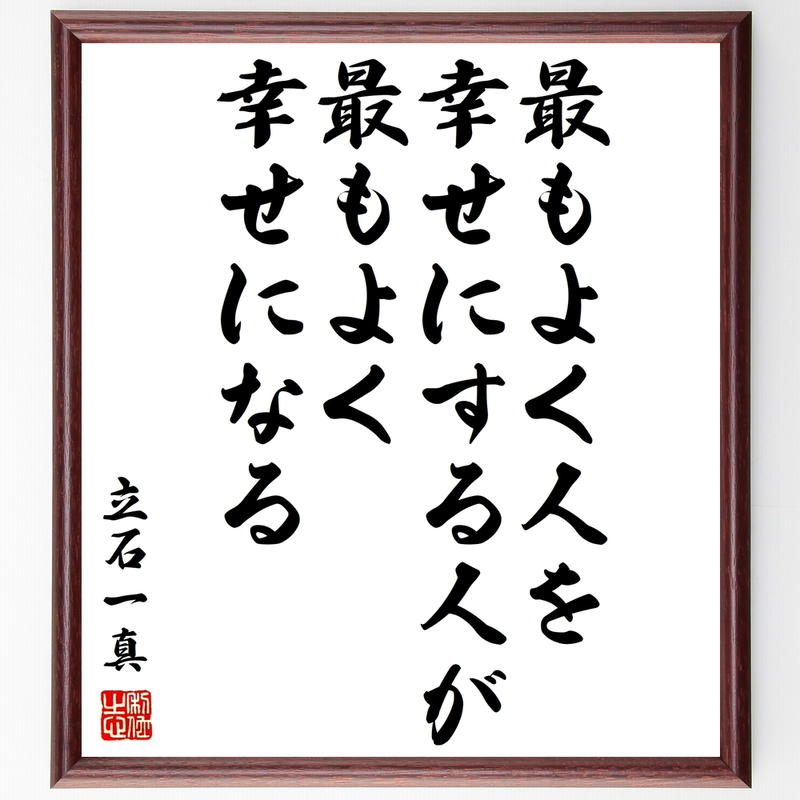 最もよく人を
幸せにする人が
最もよく
幸せになる
立石一真